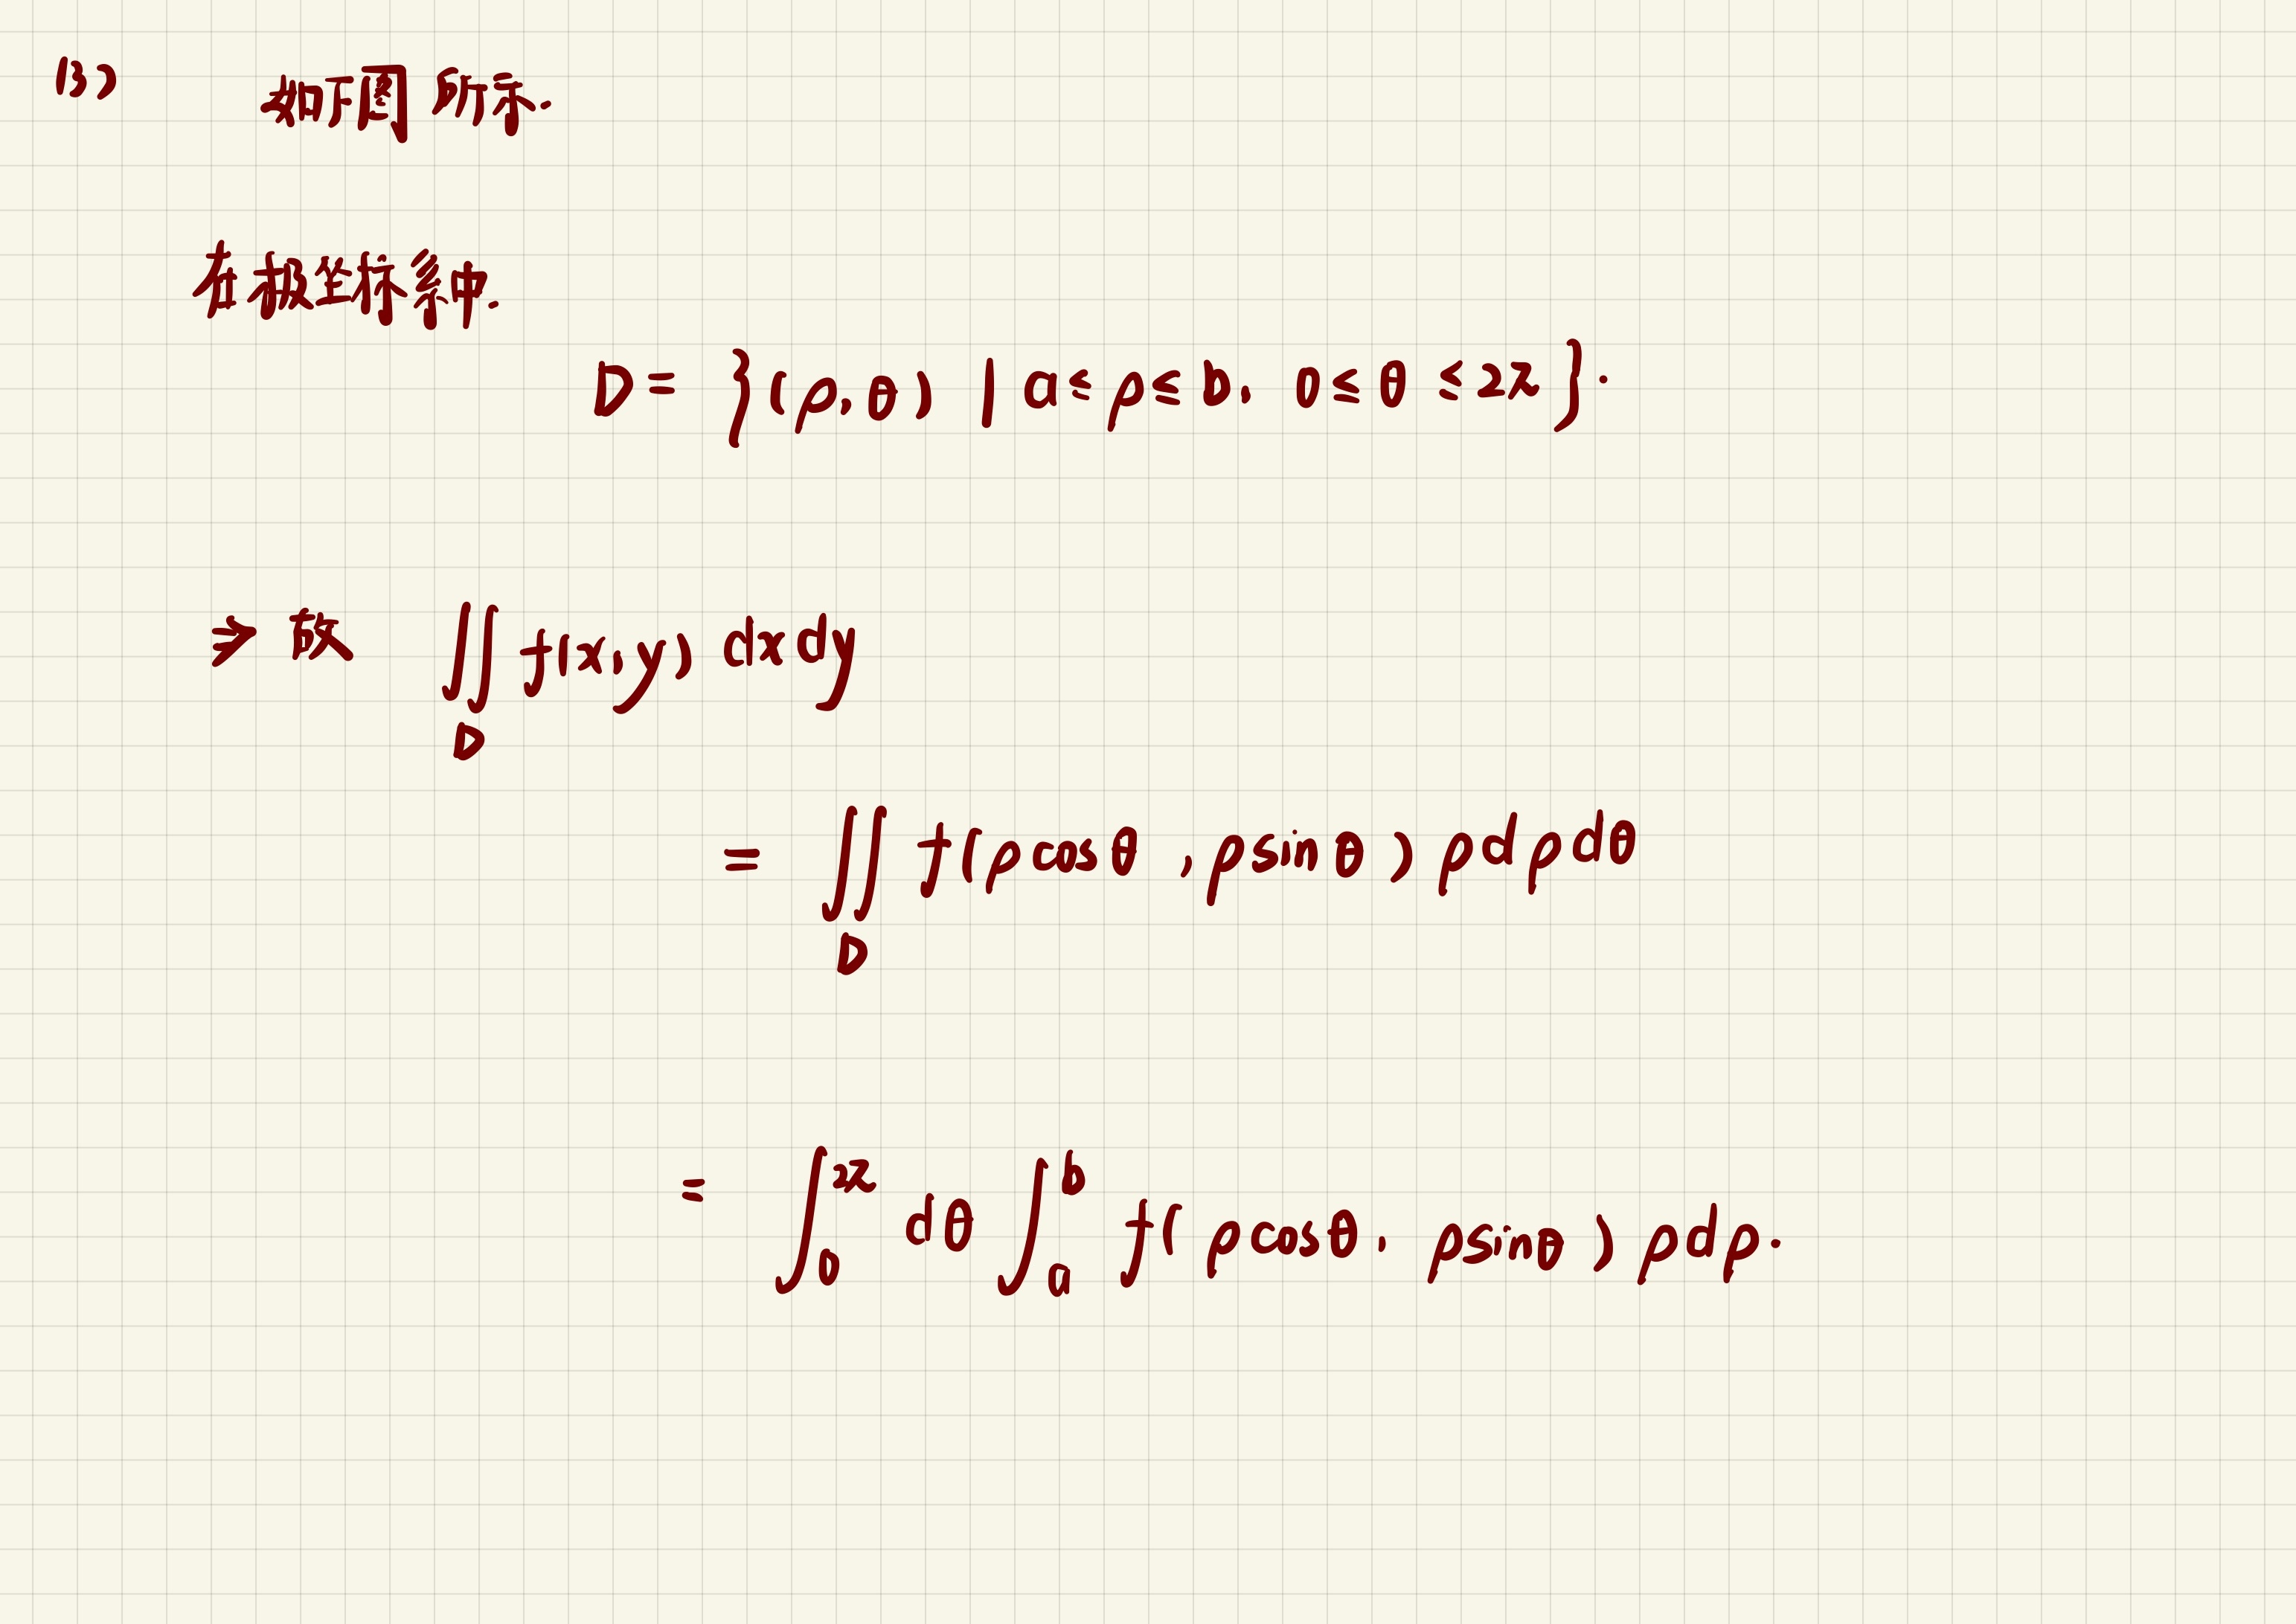 (3) 如下图所示.
在极坐标系中.
D = {(ρ, θ) | a ≤ ρ ≤ b, 0 ≤ θ ≤ 2π}.
⇒ 故 ∬_D f(x, y) dxdy
= ∬_D f(ρcosθ, ρsinθ) ρdρdθ
= ∫_0^{2π} dθ ∫_a^b f(ρcosθ, ρsinθ) ρdρ.